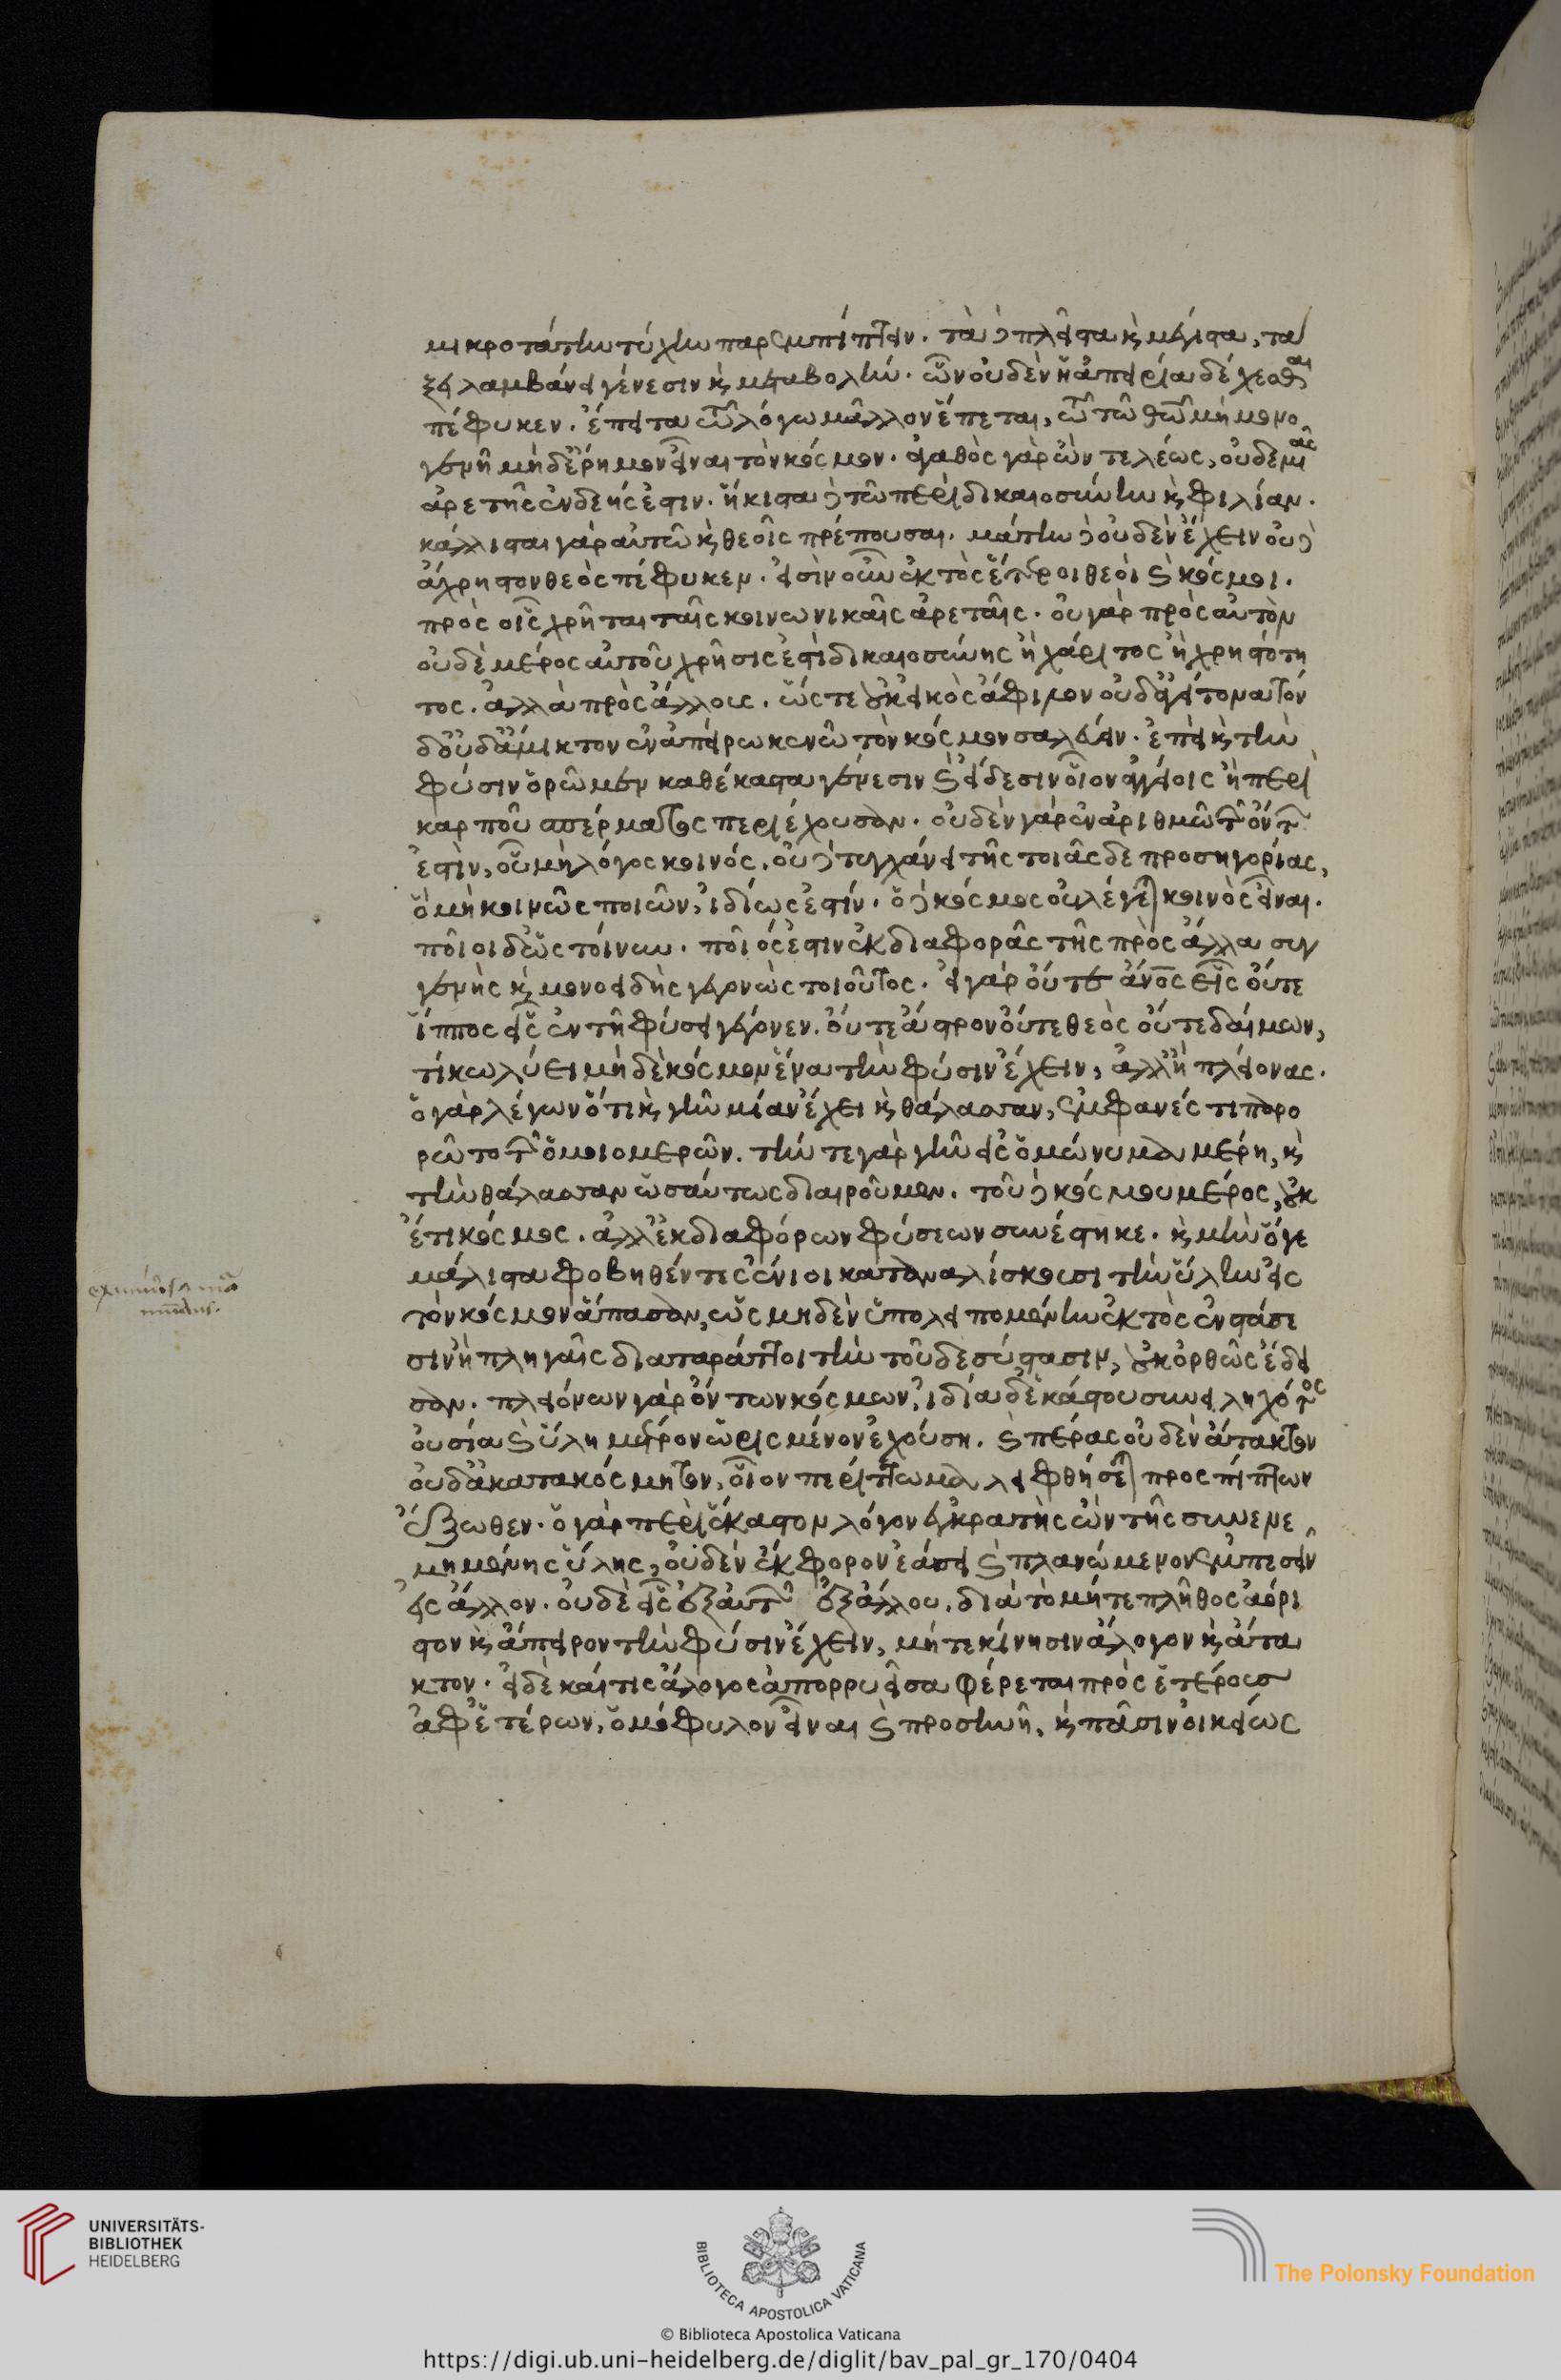 μικροτάτην τύχην παρεμπίπτειν. τὰ δὲ πλεῖστα καὶ μέγιστα, τά
ξει λαμβάνει γένεσιν καὶ μεταβολήν. ὧν οὐδὲν ἡ ἀπειρία δέχεσθαι
πέφυκεν. ἔπειτα τῶ λόγω μᾶλλον ἕπεται, τὸ τῶ θεῶ μὴ μονο
γενῆ μηδ' ἔρημον εἶναι τὸν κόσμον. ἀγαθὸς γὰρ ὢν τελέως, οὐδεμιᾶς
ἀρετῆς ἐνδεής ἐστιν. ἥκιστα δὲ τῶν περὶ δικαιοσύνην καὶ φιλίαν.
κάλλισται γὰρ αὐταὶ καὶ θεοῖς πρέπουσαι. μάτην δ' οὐδὲν ἔχειν οὐδ'
ἄχρηστον θεὸς πέφυκεν. εἰσὶν οὖν ἐκτὸς ἕτεροι θεοὶ καὶ κόσμοι.
πρὸς οἷς χρῆται ταῖς κοινωνικαῖς ἀρεταῖς. οὐ γὰρ πρὸς αὑτὸν
οὐδὲ μέρος αὑτοῦ χρῆσίς ἐστι δικαιοσύνης ἢ χάριτος ἢ χρηστότη
τος. ἀλλὰ πρὸς ἄλλους. ὥστε οὐκ εἰκὸς ἄφιλον οὐδ' ἀγείτονα τὸν
δ' οὐδ' ἄμικτον ἐν ἀπείρω κενῶ τὸν κόσμον σαλεύειν. ἐπεὶ καὶ τὴν
φύσιν ὁρῶμεν καθέκαστα γένεσιν καὶ εἴδεσιν οἷον ἀγγείοις ἢ περι
καρπου σπέρματος περιέχουσαν. οὐδὲν γὰρ ἐν ἀριθμῶ τῶν ὄντων
ἐστὶν, οὗ μὴ λόγος κοινός. οὐδὲ τυγχάνει τῆς τοιᾶσδε προσηγορίας,
ὃ μὴ κοινῶς ποιῶν, ἰδίως ἐστίν. ὁ δὲ κόσμος οὐ λέγεται κοινὸς εἶναι.
ποῖοι δ' ὡς τοίνυν. ποῖός ἐστιν ἐκ διαφορᾶς τῆς πρὸς ἄλλα συγ
γενὴς καὶ μονοειδὴς γεγονὼς τοιοῦτος. εἰ γὰρ οὔτε ἄνος εἷς οὔτε
ἵππος εἷς ἐν τῆ φύσει γέγονεν. οὔτε ἄστρον οὔτε θεὸς οὔτε δαίμων,
τί κωλύει μηδὲ κόσμον ἕνα τὴν φύσιν ἔχειν, ἀλλ' ἢ πλείονας.
ὁ γὰρ λέγων ὅτι καὶ γῆν μίαν ἔχει καὶ θάλασσαν, ἐμφανές τι παρο
ρῶ το τῶν ὁμοιομερῶν. τήν τε γὰρ γῆν εἰς ὁμώνυμα μέρη, καὶ
τὴν θάλασσαν ὡσαύτως διαιροῦμεν. τοῦ δὲ κόσμου μέρος, οὐκ
έτι κόσμος. ἀλλ' ἐκ διαφόρων φύσεων συνέστηκε. καὶ μὴν ὅ γε
μάλιστα φοβηθέντες ἔνιοι καταναλίσκουσι τὴν ὕλην εἰς
τὸν κόσμον ἅπασαν, ὡς μηδὲν ὑπολειπομένην ἐκτὸς ἐνστάσε
σιν ἢ πληγαῖς διαταράττοι τὴν τοῦδε σύστασιν, οὐκ ὀρθῶς ἔδει
σαν. πλειόνων γὰρ ὄντων κόσμων, ἰδία δ' ἑκάστου συνειληχότος
οὐσία καὶ ὕλη μέτρον ὡρισμένον ἐχούση. καὶ πέρας οὐδὲν ἄτακτον
οὐδ' ἀκατακόσμητον, οἷον περίττωμα λειφθήσεται προσπίπτων
ἔξωθεν. ὁ γὰρ περὶ ἕκαστον λόγον ἐγκρατὴς ὢν τῆς συνεμε
μημένης ὕλης, οὐδὲν ἔκφορον ἐάσει καὶ πλανώμενον ἐμπεσεῖν
εἰς ἄλλον. οὐδὲ εἰς ἐξ αὑτοῦ ἐξ ἄλλου. διὰ τὸ μήτε πλῆθος ἀόρι
στον καὶ ἄπειρον τὴν φύσιν ἔχειν, μήτε κίνησιν ἄλογον καὶ ἄτα
κτον. εἰ δὲ καί τις ἄλογος ἀπορρυεῖσα φέρεται πρὸς ἑτέρους
ἀφ' ἑτέρων, ὁμόφυλον εἶναι καὶ προσηνῆ, καὶ πᾶσιν οἰκείως
UNIVERSITÄTS-
BIBLIOTHEK
HEIDELBERG
BIBLIOTECA APOSTOLICA VATICANA
The Polonsky Foundation
© Biblioteca Apostolica Vaticana
https://digi.ub.uni-heidelberg.de/diglit/bav_pal_gr_170/0404